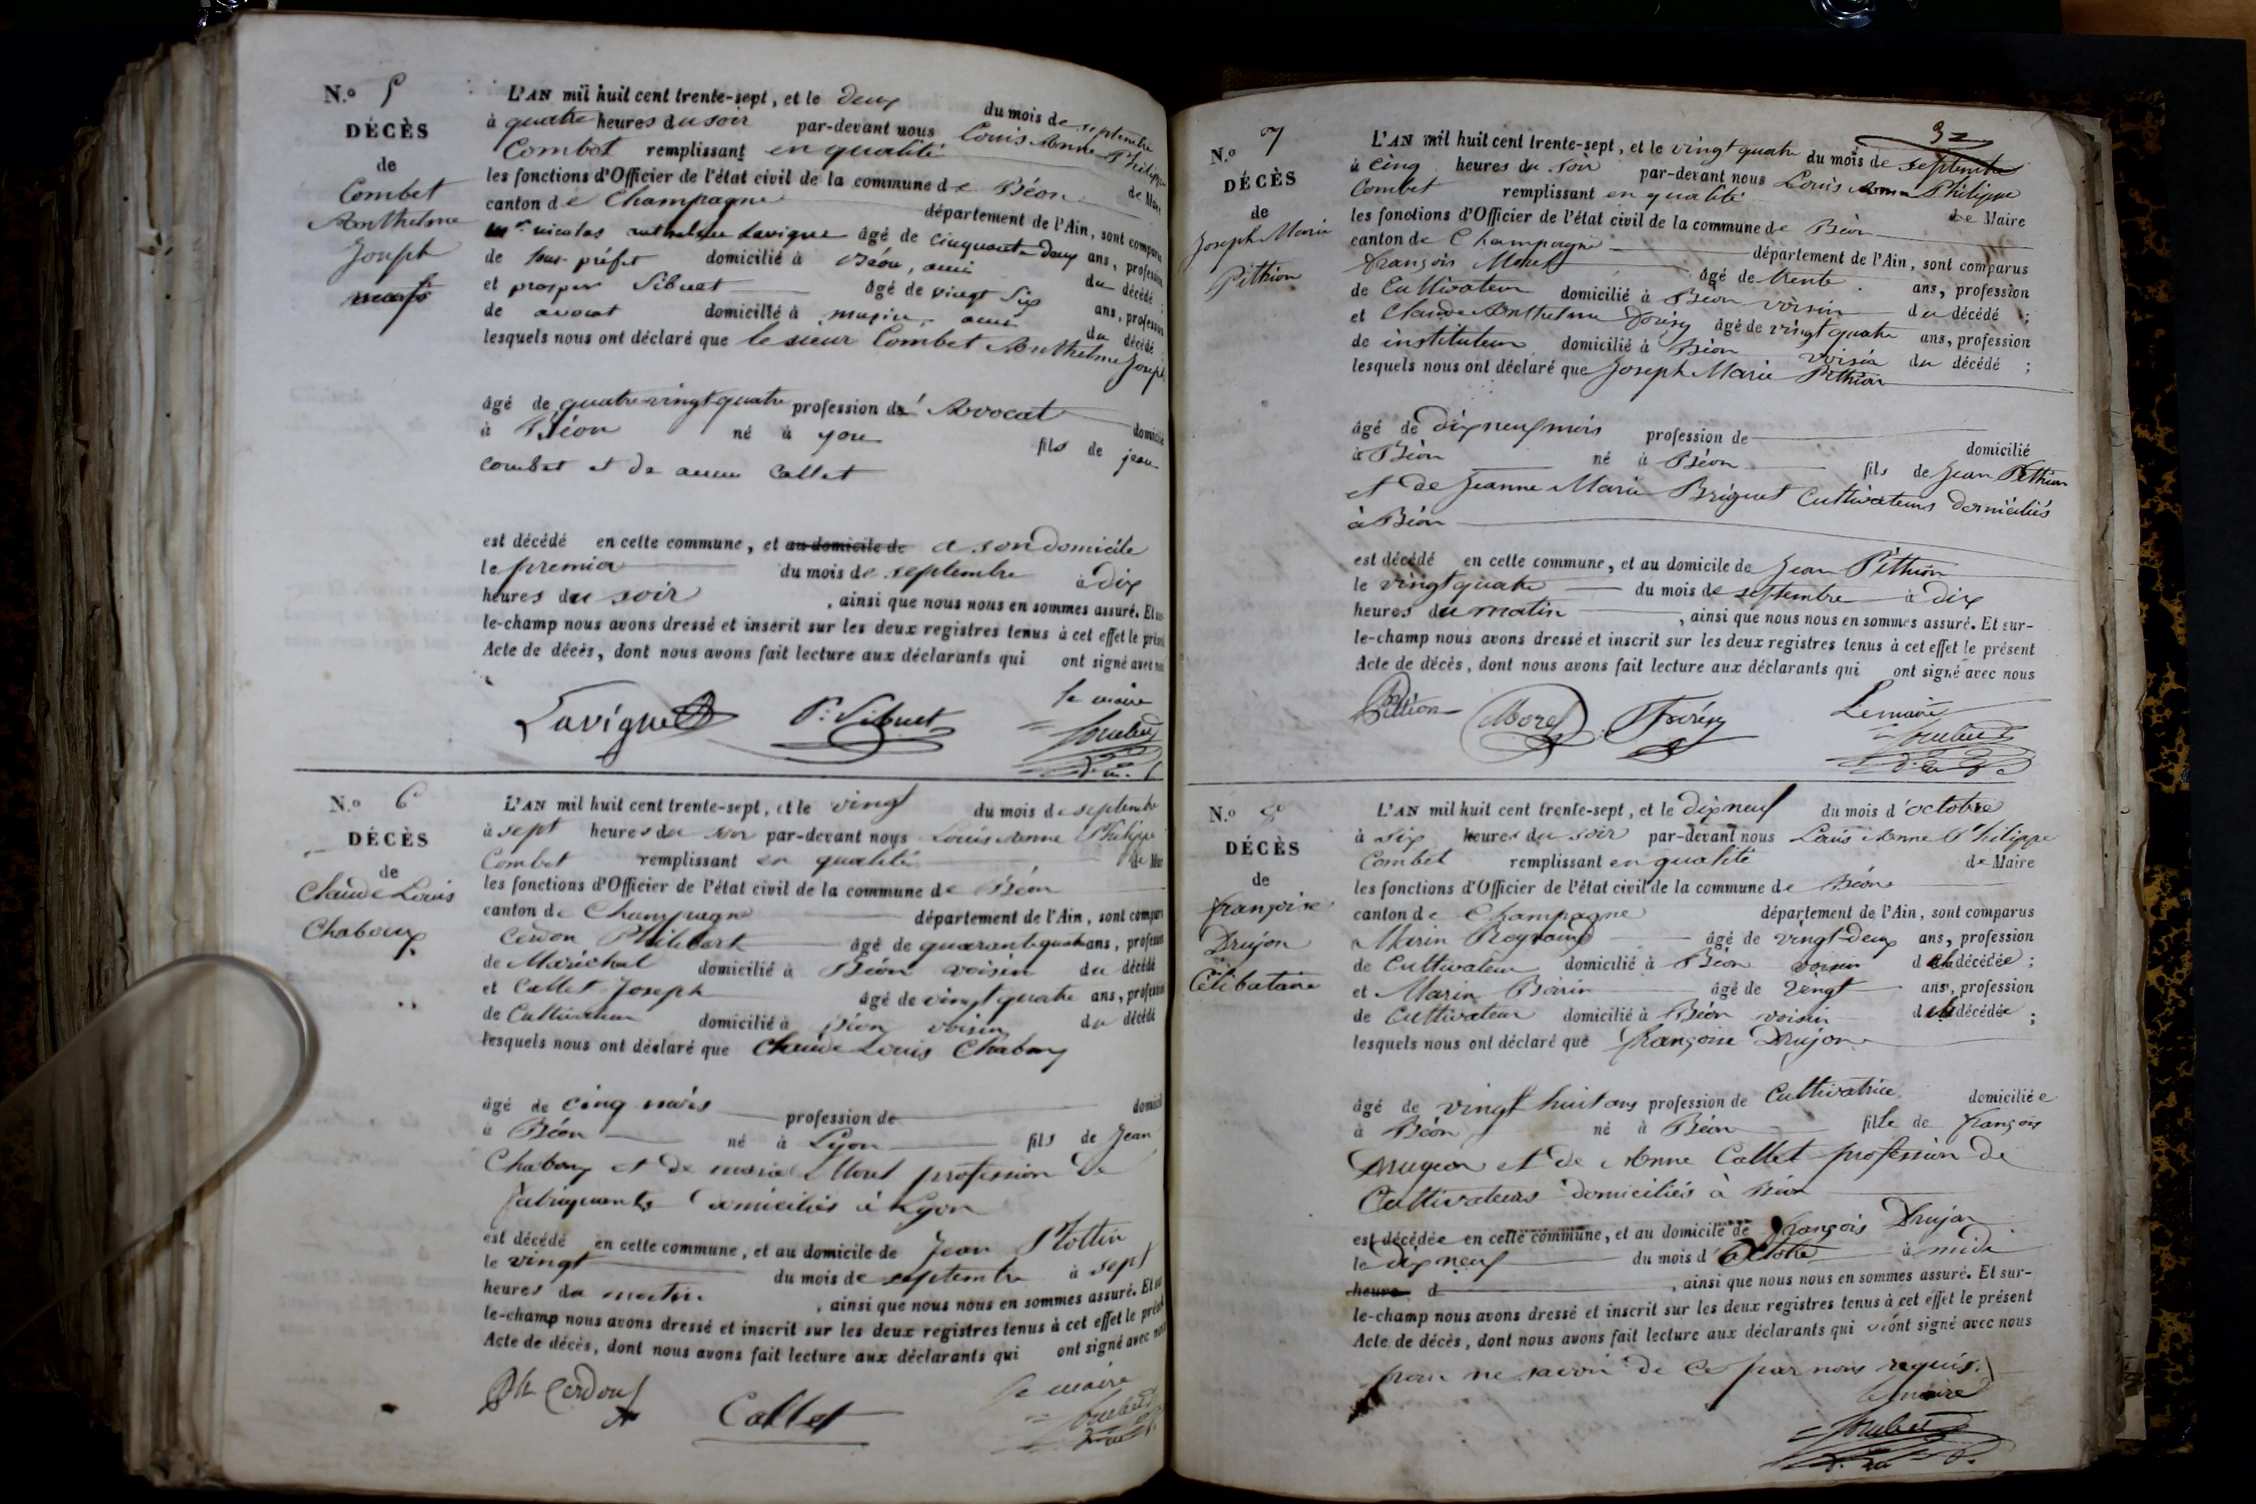 N.o 5
DÉCÈS
de
Combet
Anthelme
Joseph
L'AN mil huit cent trente-sept, et le deux du mois de septembre
à quatre heures du soir par-devant nous Louis Anne Philippe
Combet remplissant en qualité de Maire
les fonctions d'Officier de l'état civil de la commune de Béon
canton de Champagne département de l'Ain, sont comparus
Mr. nicolas anthelme Lavigne âgé de cinquante deux ans, profession
de sous-préfet domicilié à Béon, ami du décédé
et prosper Sibuet âgé de vingt six ans, profession
de avocat domicilié à , ami du décédé
lesquels nous ont déclaré que le sieur Combet Anthelme Joseph
âgé de quatre-vingt quatre profession d' Avocat domicilié
à Béon né à fils de jean
combet et de anne Callet
est décédé en cette commune, et au domicile de a son domicile
le premier du mois de septembre à dix
heures du soir , ainsi que nous nous en sommes assuré. Et sur-
le-champ nous avons dressé et inscrit sur les deux registres tenus à cet effet le présent
Acte de décès, dont nous avons fait lecture aux déclarants qui ont signé avec nous
Lavigne P. Sibuet le maire
N.o 6
DÉCÈS
de
Claude Louis
Chaboux
L'AN mil huit cent trente-sept, et le vingt du mois de septembre
à sept heures du soir par-devant nous Louis Anne Philippe
Combet remplissant en qualité de Maire
les fonctions d'Officier de l'état civil de la commune de Béon
canton de Champagne département de l'Ain, sont comparus
Cerdon Philibert âgé de quarante quatre ans, profession
de Maréchal domicilié à Béon voisin du décédé
et Callet Joseph âgé de vingt quatre ans, profession
de Cultivateur domicilié à Béon voisin du décédé
lesquels nous ont déclaré que Claude Louis Chaboux
âgé de cinq mois profession de domicilié
à Béon né à Lyon fils de Jean
Chaboux et de marie Moret profession de
fabriquants domiciliés à Lyon
est décédé en cette commune, et au domicile de Jean Plottin
le vingt du mois de septembre à sept
heures du matin , ainsi que nous nous en sommes assuré. Et sur-
le-champ nous avons dressé et inscrit sur les deux registres tenus à cet effet le présent
Acte de décès, dont nous avons fait lecture aux déclarants qui ont signé avec nous
Ph Cerdon Callet le maire
32
N.o 7
DÉCÈS
de
Joseph Marie
Péthion
L'AN mil huit cent trente-sept, et le vingt quatre du mois de septembre
à cinq heures du soir par-devant nous Louis Anne Philippe
Combet remplissant en qualité de Maire
les fonctions d'Officier de l'état civil de la commune de Béon
canton de Champagne département de l'Ain, sont comparus
françois Morel âgé de trente ans, profession
de Cultivateur domicilié à Béon voisin du décédé ;
et Claude Anthelme Forésy âgé de vingt quatre ans, profession
de instituteur domicilié à Béon voisin du décédé ;
lesquels nous ont déclaré que Joseph Marie Péthion
âgé de dix neuf mois profession de domicilié
à Béon né à Béon fils de Jean Péthion
et de Jeanne Marie Briguet Cultivateurs domiciliés
à Béon
est décédé en cette commune, et au domicile de Jean Péthion
le vingt quatre du mois de septembre à dix
heures du matin , ainsi que nous nous en sommes assuré. Et sur-
le-champ nous avons dressé et inscrit sur les deux registres tenus à cet effet le présent
Acte de décès, dont nous avons fait lecture aux déclarants qui ont signé avec nous
Péthion Morel Forésy Le maire
N.o 8
DÉCÈS
de
françoise
Drujon
Célibataire
L'AN mil huit cent trente-sept, et le dix neuf du mois d'octobre
à six heures du soir par-devant nous Louis Anne Philippe
Combet remplissant en qualité de Maire
les fonctions d'Officier de l'état civil de la commune de Béon
canton de Champagne département de l'Ain, sont comparus
Marin Reynaud âgé de vingt-deux ans, profession
de Cultivateur domicilié à Béon voisin de la décédée ;
et Marin Borin âgé de vingt ans, profession
de Cultivateur domicilié à Béon voisin de la décédée ;
lesquels nous ont déclaré que françoise Drujon
âgé de vingt huit ans profession de Cultivatrice domiciliée
à Béon né à Béon fille de françois
Drugeon et de Anne Callet profession de
Cultivateurs domiciliés à Béon
est décédée en cette commune, et au domicile de françois Drujon
le dix neuf du mois d'octobre à midi
heure d , ainsi que nous nous en sommes assuré. Et sur-
le-champ nous avons dressé et inscrit sur les deux registres tenus à cet effet le présent
Acte de décès, dont nous avons fait lecture aux déclarants qui n'ont signé avec nous
pour ne savoir de ce par nous requis.
le maire